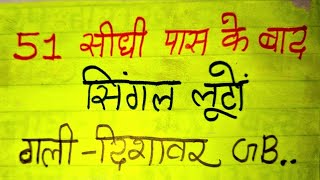 51 सीधी पास के बाद
सिंगल लूटों
गली-दिशावर GB..